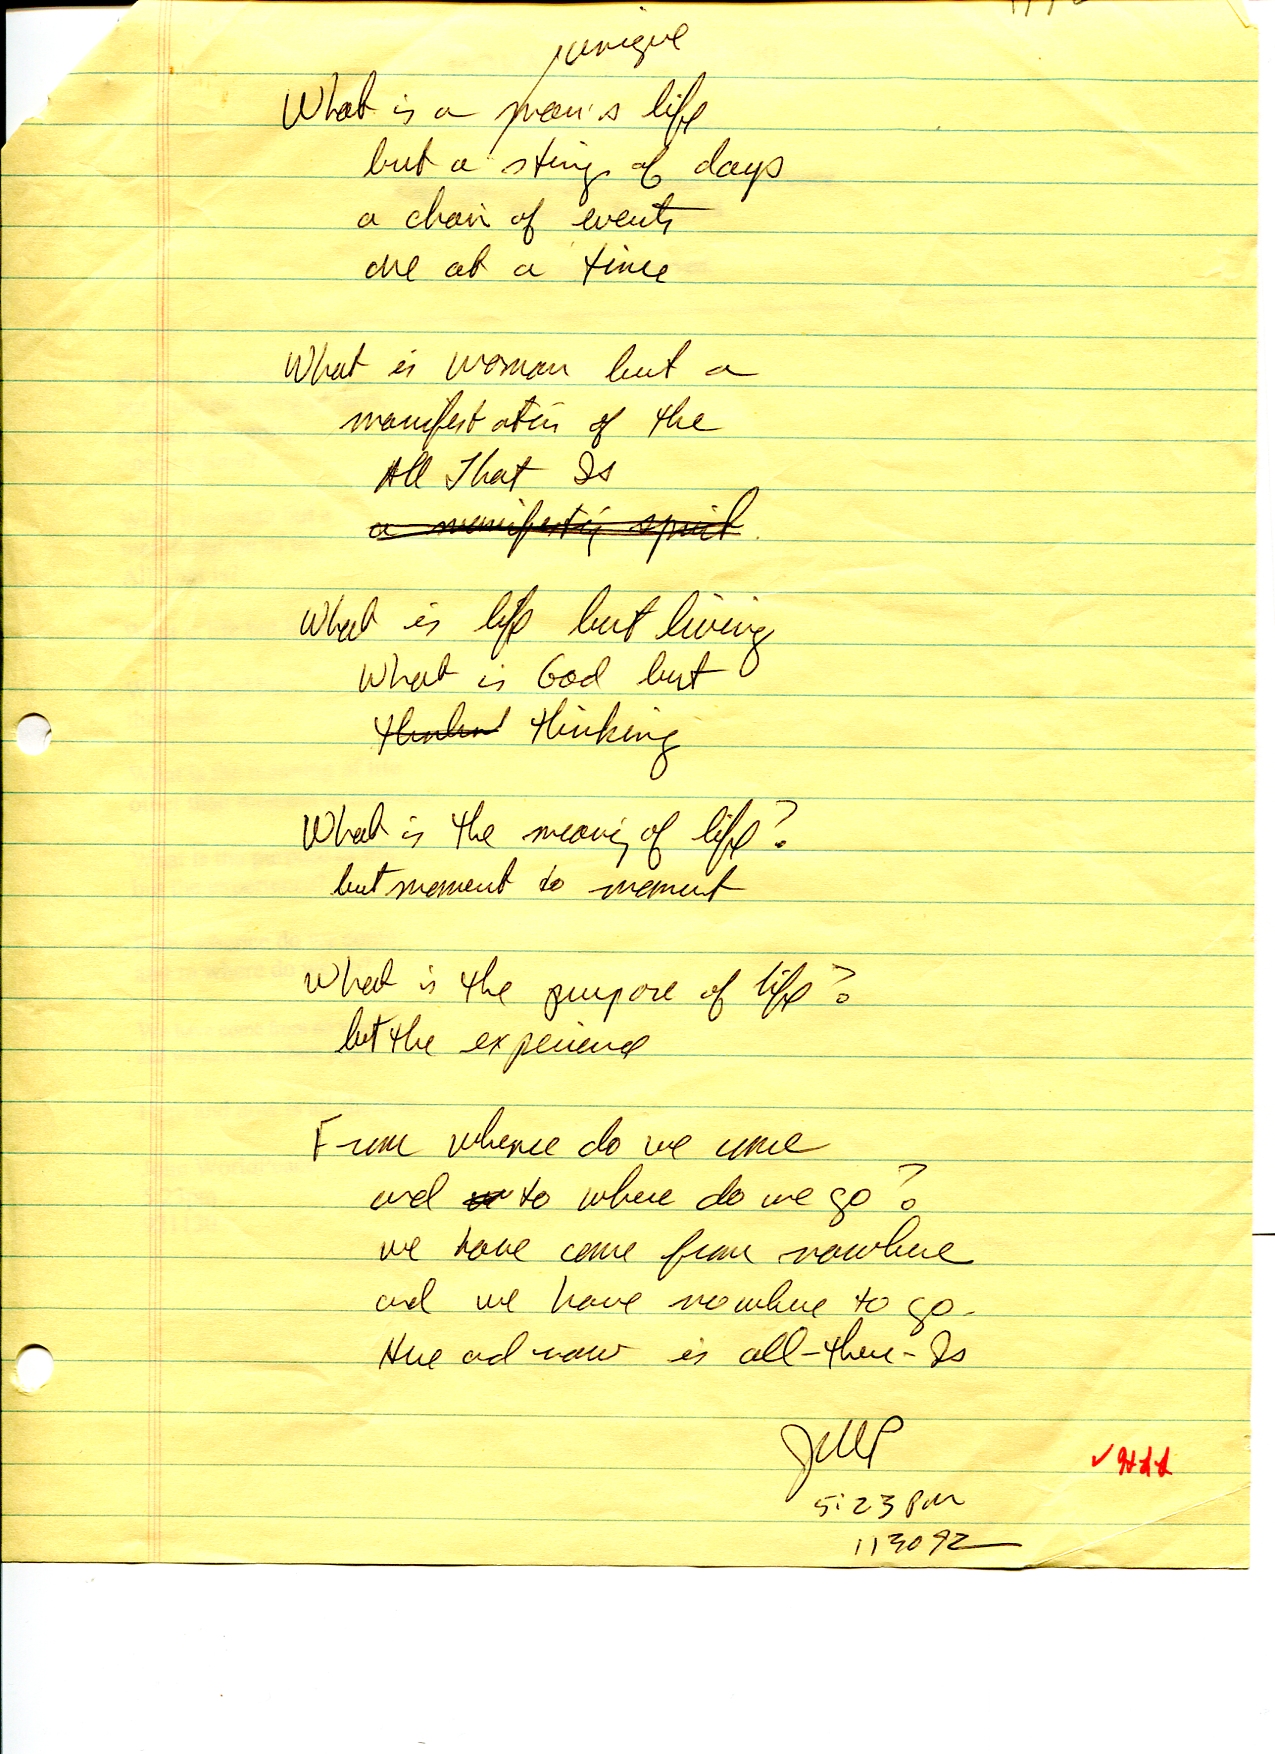 unique
What is a man's life
but a string of days
a chain of events
one at a time
What is woman but a
manifestation of the
All That Is
a manifesting spirit.
What is life but living
What is God but
thinking
What is the meaning of life?
but moment to moment
What is the purpose of life?
but the experience
From whence do we come
and to where do we go?
we have come from nowhere
and we have nowhere to go.
Here and now is all-there-Is
5:23 PM
113092